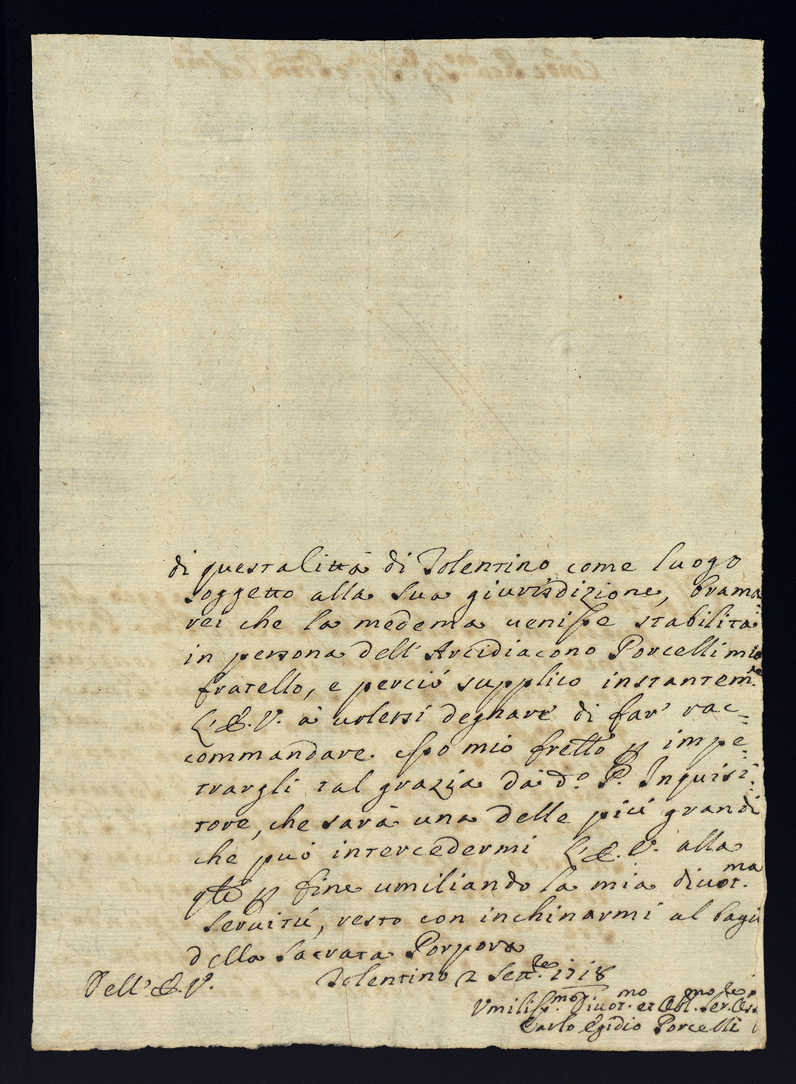 di questa Città di Tolentino come luogo
soggetto alla sua giurisdizione, brama
rei che la medema venisse stabilita
in persona dell' Arcidiacono Porcelli mio
fratello, e perciò supplico instantem.te
L'E.V. à volersi degnare di far' rac=
commandare. Sso mio fretto p impe=
trargli tal grazia da d.o P. Inquisi=
tore, che sarà una delle più grandi
che può intercedermi L'E.V. alla
qle p fine umiliando la mia divot.ma
servitù, resto con inchinarmi al bagio
della Sacrata Porpora
Dell' E.V. Tolentino 2 Sett.re 1718
Vmiliss.mo Divot.mo et Obl.mo Ser.re
Carlo Egidio Porcelli